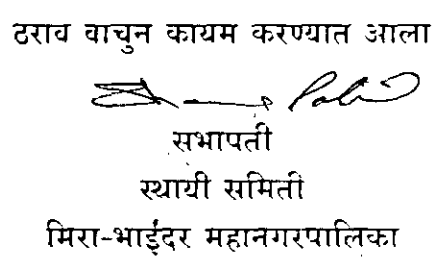 ठराव वाचुन कायम करण्यात आला
सभापती
स्थायी समिती
मिरा-भाईंदर महानगरपालिका